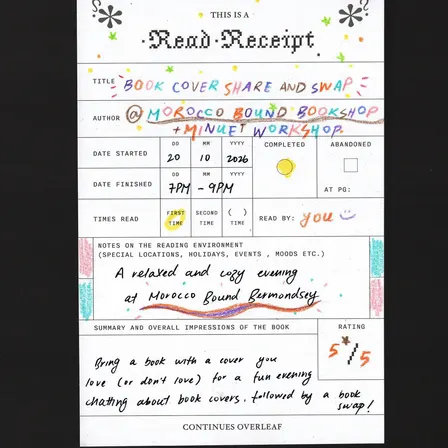 THIS IS A
Read Receipt
TITLE BOOK COVER SHARE AND SWAP
AUTHOR @ MOROCCO BOUND BOOKSHOP
+ MINUET WORKSHOP.
DATE STARTED DD MM YYYY COMPLETED ABANDONED
20 10 2026
DATE FINISHED 7PM - 9PM AT PG:
TIMES READ FIRST TIME SECOND TIME ( ) TIME READ BY: you
NOTES ON THE READING ENVIRONMENT
(SPECIAL LOCATIONS, HOLIDAYS, EVENTS, MOODS ETC.)
A relaxed and cozy evening
at Morocco Bound Bermondsey
SUMMARY AND OVERALL IMPRESSIONS OF THE BOOK RATING
5/5
Bring a book with a cover you
love (or don't love) for a fun evening
chatting about book covers, followed by a book
swap!
CONTINUES OVERLEAF